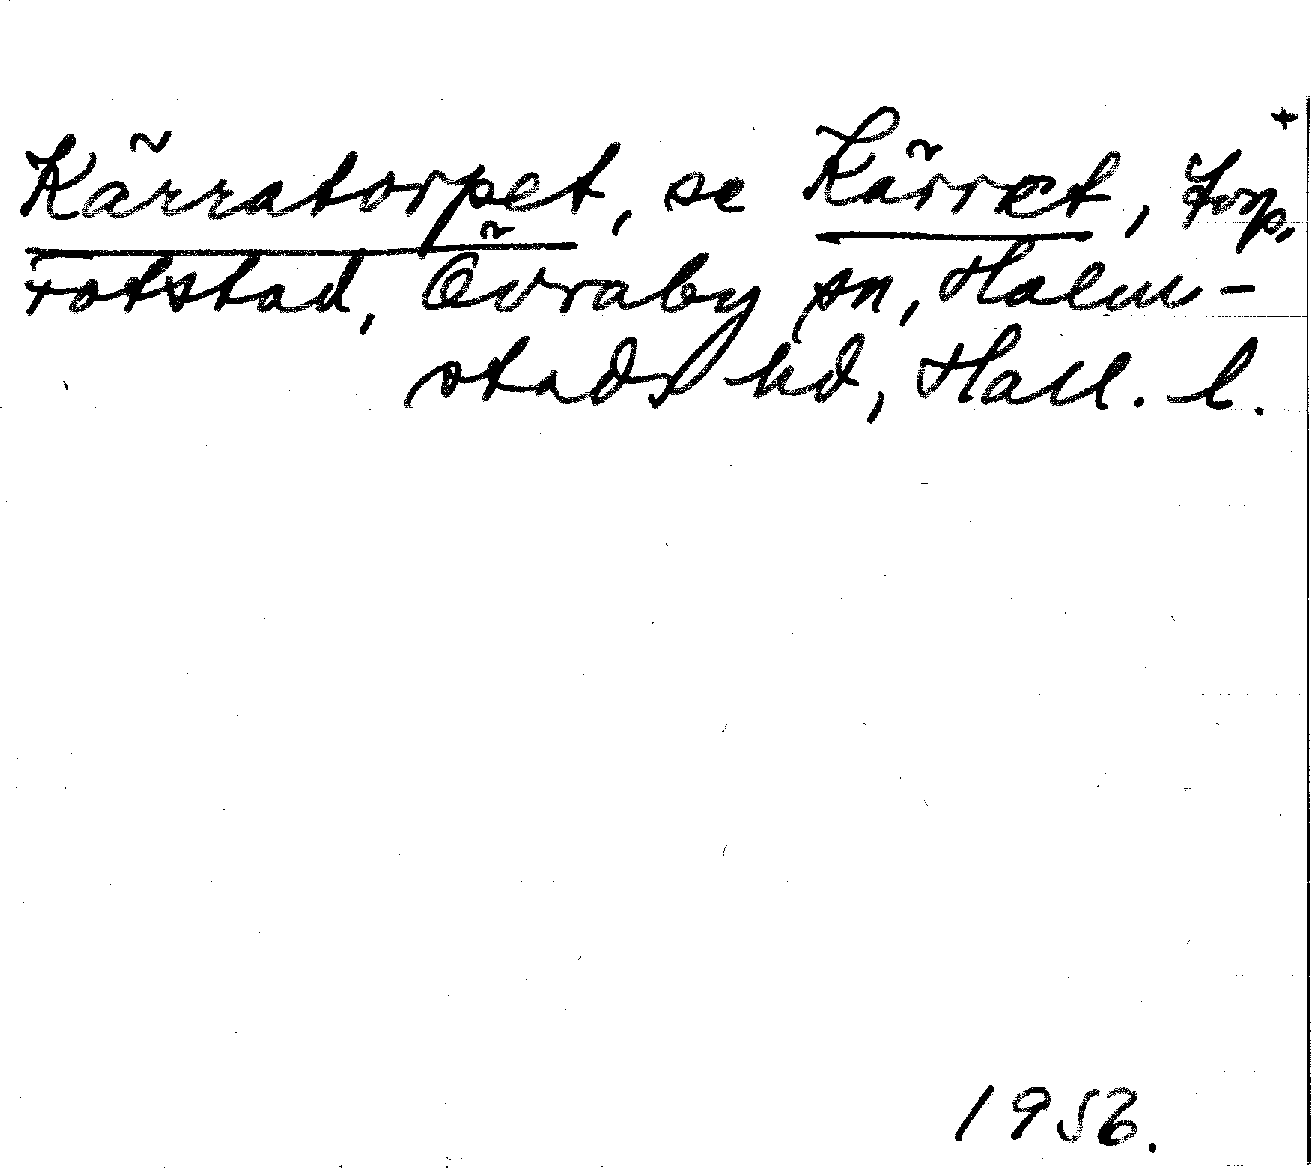 Kärratorpet, se Kärret, torp, +
rotstad, Övraby sn, Halm-
stads hd, Hall. l.
1956.